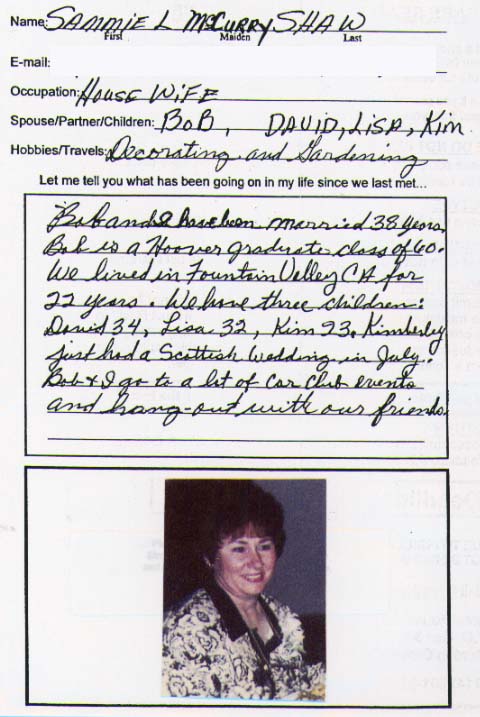 Name: SAMMIE L McCURRY SHAW
First Maiden Last
E-mail:
Occupation: HOUSE WIFE
Spouse/Partner/Children: BOB, DAVID, LISA, Kim
Hobbies/Travels: Decorating and Gardening
Let me tell you what has been going on in my life since we last met...
Bob and I have been married 38 years.
Bob is a Hoover graduate class of 60.
We lived in Fountain Valley CA for
22 years. We have three children:
David 34, Lisa 32, Kim 23. Kimberley
just had a Scottish Wedding in July.
Bob & I go to a lot of Car Club events
and hang-out with our friends.